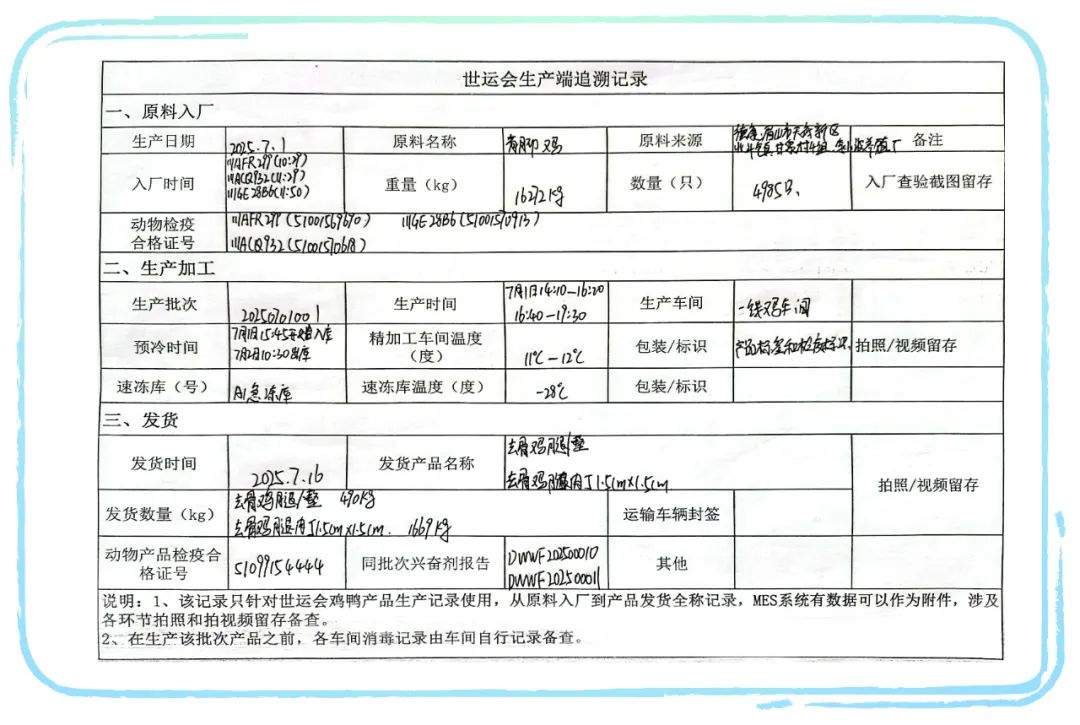 世运会生产端追溯记录
一、原料入厂
生产日期 2025.7.1 原料名称 青脚鸡 原料来源 备注
入厂时间 川AFR299(10:29) 重量（kg） 16272kg 数量（只） 4985只、 入厂查验截图留存
川ACQ932(11:29)
川GE28B6(11:50)
动物检疫
合格证号 川GE28B6(51001570913)
川ACQ932(51001570618)
二、生产加工
生产批次 20250701001 生产时间 7月1日14:10—16:20
16:40—19:30 生产车间
预冷时间 7月1日15:45开始入库
7月2日10:30出库 精加工车间温度
（度） 11℃—12℃ 包装/标识 拍照/视频留存
速冻库（号） A1急冻库 速冻库温度（度） -28℃ 包装/标识
三、发货
发货时间 2025.7.16 发货产品名称 去骨鸡腿/整
去骨鸡腿肉丁1.5cm×1.5cm 拍照/视频留存
发货数量（kg） 去骨鸡腿/整 490kg
去骨鸡腿肉丁1.5cm×1.5cm. 1669kg 运输车辆封签
动物产品检疫合
格证号 51099154444 同批次兴奋剂报告 DWWF202500010
DWWF202500011 其他
说明：1、该记录只针对世运会鸡鸭产品生产记录使用，从原料入厂到产品发货全称记录，MES系统有数据可以作为附件，涉及
各环节拍照和拍视频留存备查。
2、在生产该批次产品之前，各车间消毒记录由车间自行记录备查。